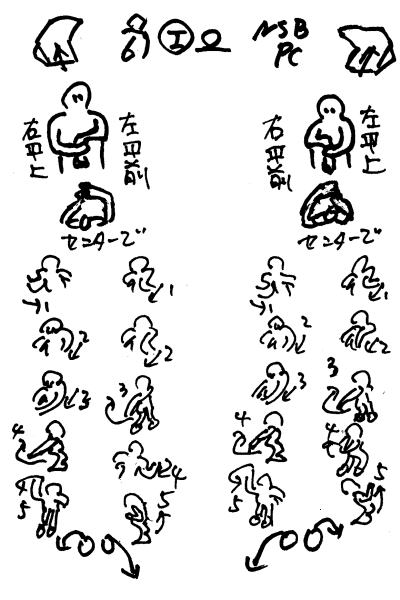 NSB
PC
右平上
左平前
右平前
左平上
センターで
センターで
1
1
1
1
2
2
2
2
3
3
3
3
4
4
4
4
4
5
5
5
5